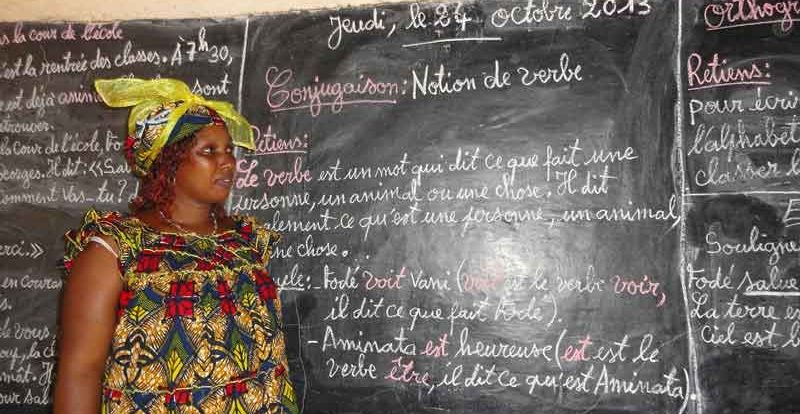 la cour de l'école
est la rentrée des classes. À 7h 30,
est déjà sont
retrouver.
la cour de l'école, Fo
Georges. Il dit : «Sa
comment vas-tu ?
erci.»
en couran
Jeudi, le 24 octobre 2013
Conjugaison : Notion de verbe
Retiens :
Le verbe est un mot qui dit ce que fait une
personne, un animal ou une chose. Il dit
également ce qu'est une personne, un animal,
une chose...
- Fodé voit Vani (voit est le verbe voir,
il dit ce que fait Fodé).
- Aminata est heureuse (est est le
verbe être, il dit ce qu'est Aminata).
Orthogr
Retiens :
pour écri
l'alphabet
classer l
E
Souligne
Fodé salue
La terre e
ciel est b